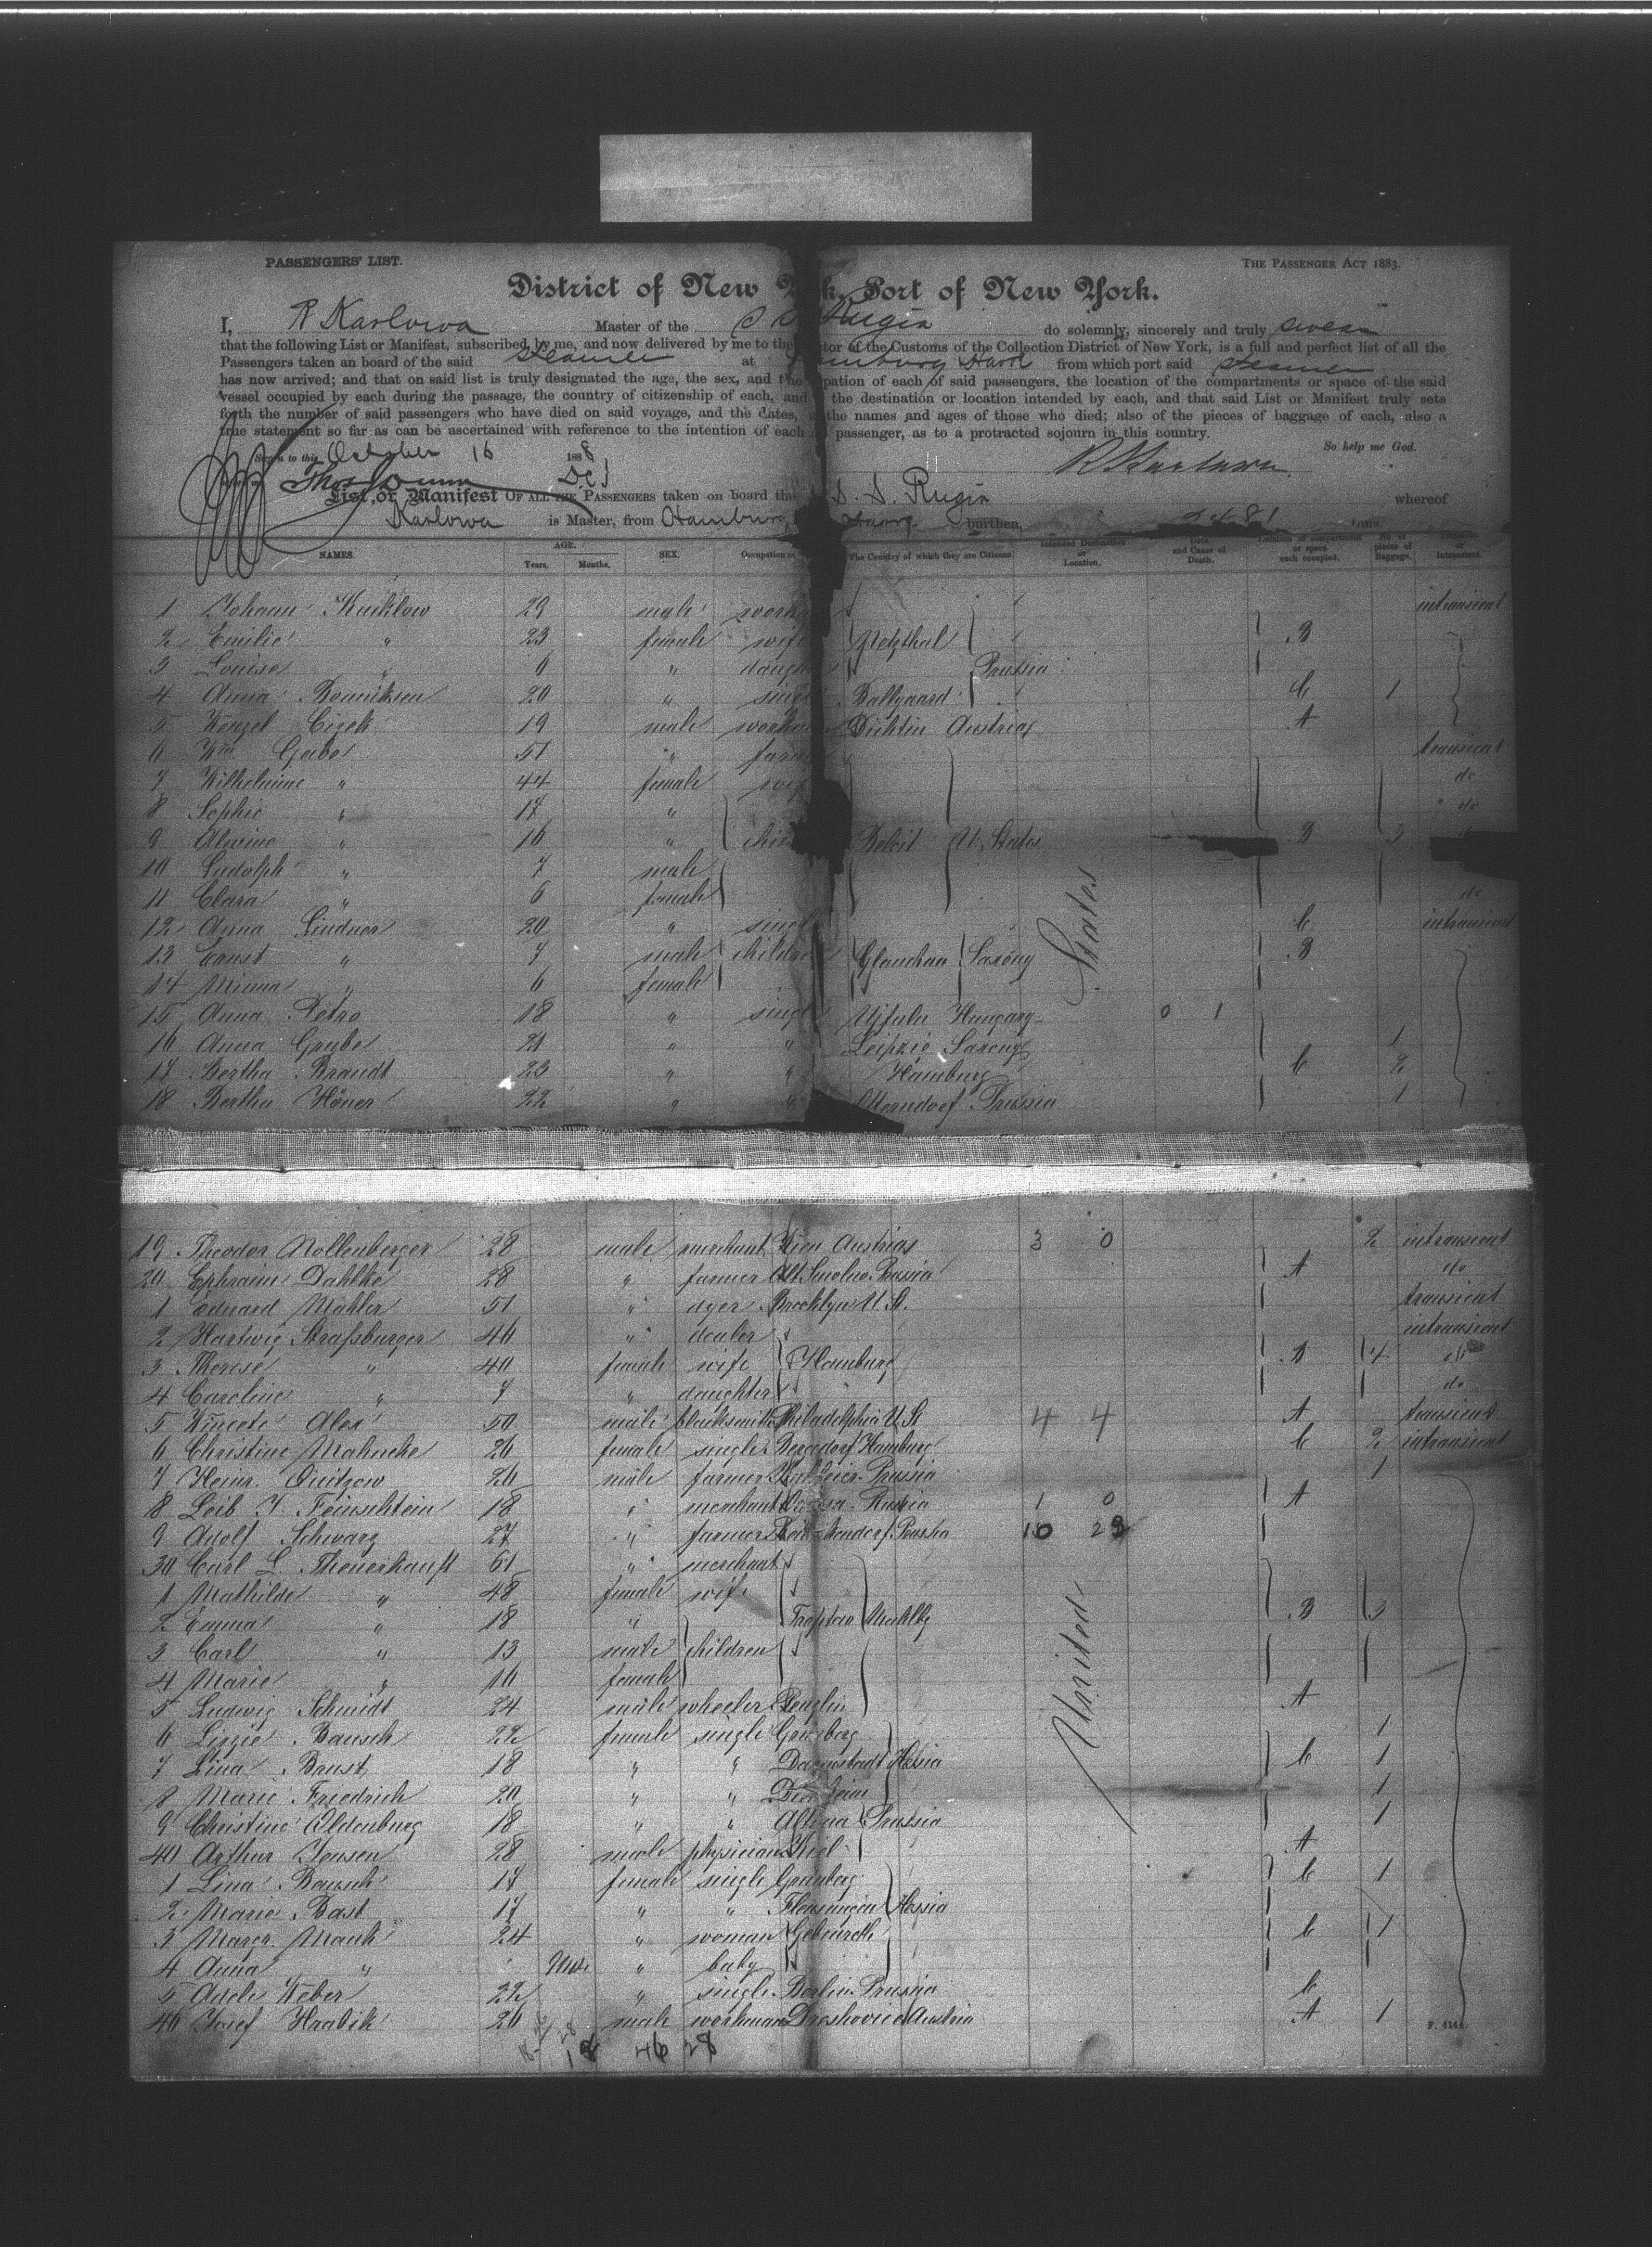 PASSENGERS' LIST. THE PASSENGER ACT 1883.
District of New York, Port of New York.
I, R Karlowa Master of the S S Rugia do solemnly, sincerely and truly swear
that the following List or Manifest, subscribed by me, and now delivered by me to the tor of the Customs of the Collection District of New York, is a full and perfect list of all the
Passengers taken an board of the said steamer at Hamburg from which port said steamer
has now arrived; and that on said list is truly designated the age, the sex, and the pation of each of said passengers, the location of the compartments or space of the said
vessel occupied by each during the passage, the country of citizenship of each, and the destination or location intended by each, and that said List or Manifest truly sets
forth the number of said passengers who have died on said voyage, and the dates, the names and ages of those who died; also of the pieces of baggage of each, also a
true statement so far as can be ascertained with reference to the intention of each passenger, as to a protracted sojourn in this country.
So help me God.
Sworn to this October 16 1888
R Karlowa
List or Manifest OF ALL THE PASSENGERS taken on board the S. S. Rugia whereof
Karlowa is Master, from Hamburg burthen, tons.
NAMES. AGE. Years. Months. SEX. Occupation The Country of which they are Citizens. Intended Destination or Location. Date and Cause of Death. Location of compartment or space each occupied. No. of pieces of Baggage. Transient or Intransient.
1 Johann 29 male intransient
2 Emilie " 23 female wife Netzthal B
3 Louise " 6 " daugh Prussia
4 Anna 20 " singl C 1
5 Wenzel Cizek 19 male Austria A
6 Wm Gabe 51 " farm transient
7 Wilhelmine " 44 female wif do
8 Sophie " 17 " do
9 Alwine " 16 " Beloit U. States B 3
10 Ludolph " 7 male
11 Clara " 6 female do
12 Anna Lindner 20 " singl C intransient
13 Ernst " 7 male childre Glauchau Saxony B
14 Minna " 6 female
States
15 Anna Petro 18 " singl Hungary 0 1
16 Anna Grube 21 " " Leipzig Saxony 1
17 Bertha Brandt 23 " " Hamburg C 2
18 Bertha Höner 22 " " Prussia 1
19 Theodor Nollenberger 28 male merchant Wien Austria 3 0 2 intransient
20 Ephraim Dahlke 28 " farmer Prussia A do
1 Eduard Mahler 51 " dyer Brooklyn U. St. transient
2 Hartwig Straßburger 46 " dealer intransient
3 Therese " 40 female wife Hamburg B 4 do
4 Caroline " 7 " daughter do
5 Alex 50 male blacksmith Philadelphia U. St 4 4 A transient
6 Christine Mahncke 26 female single Bergedorf Hamburg C 2 intransient
7 Heinr. Quitzow 26 male farmer Prussia 1
8 Leib J. Feinschtein 18 " merchant Russia 1 0 A
9 Adolf Schwarz 27 " farmer Prussia 10 23
30 Carl L. Theuerkauff 61 " merchant
1 Mathilde " 48 female wife
2 Emma " 18 " B 3
3 Carl " 13 male children
4 Marie " 10 female
United
5 Ludwig Schmidt 24 male wheeler Penzlin A
6 Lizzie Bausch 22 female single Grünberg 1
7 Lina Brust 18 " " Darmstadt Hessia C 1
8 Marie Friedrich 20 " " 1
9 Christine Oldenburg 18 " " Altona Prussia 1
40 Arthur Jensen 28 male physician Kiel A
1 Lina Bausch 17 female single Grünberg C 1
2 Marie Bast 17 " " Flensungen Hessia
3 Margr. Mank 24 " woman C 1
4 Anna " " baby
5 Adele Weber 22 " single Berlin Prussia C
46 Josef Hrabik 26 male workman Austria A 1
46 28